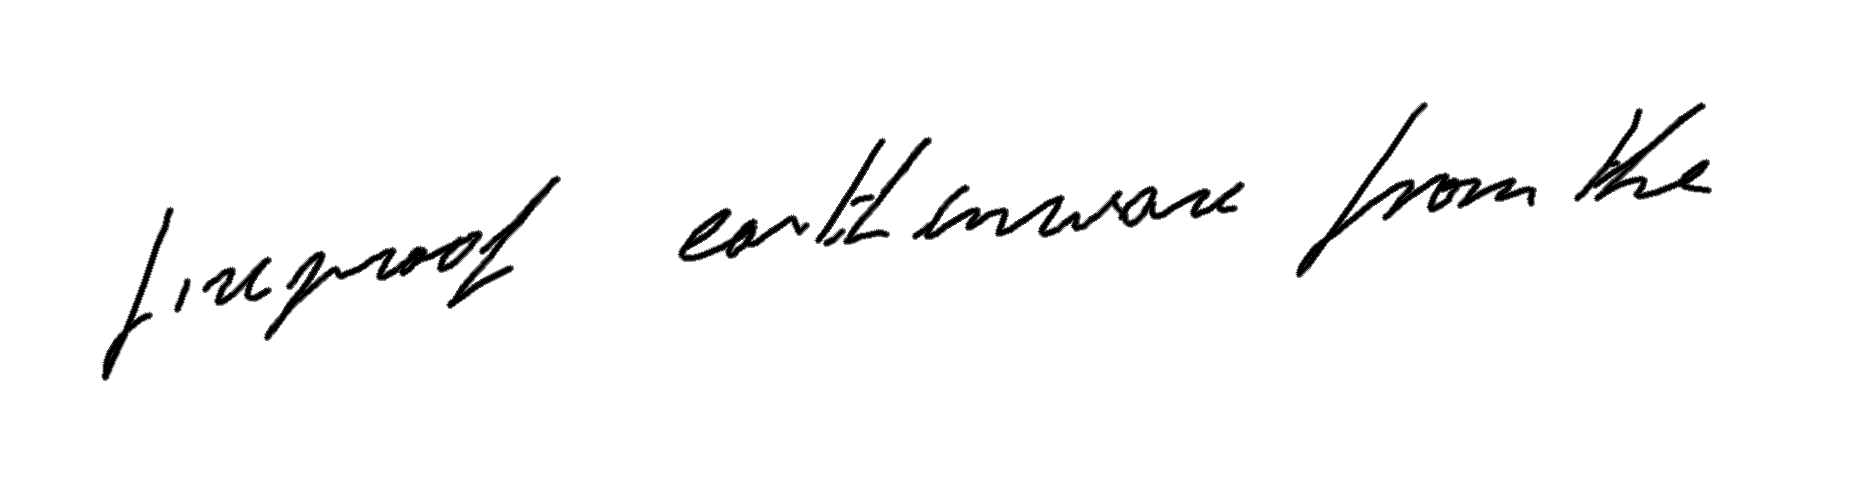 fireproof earthenware from the